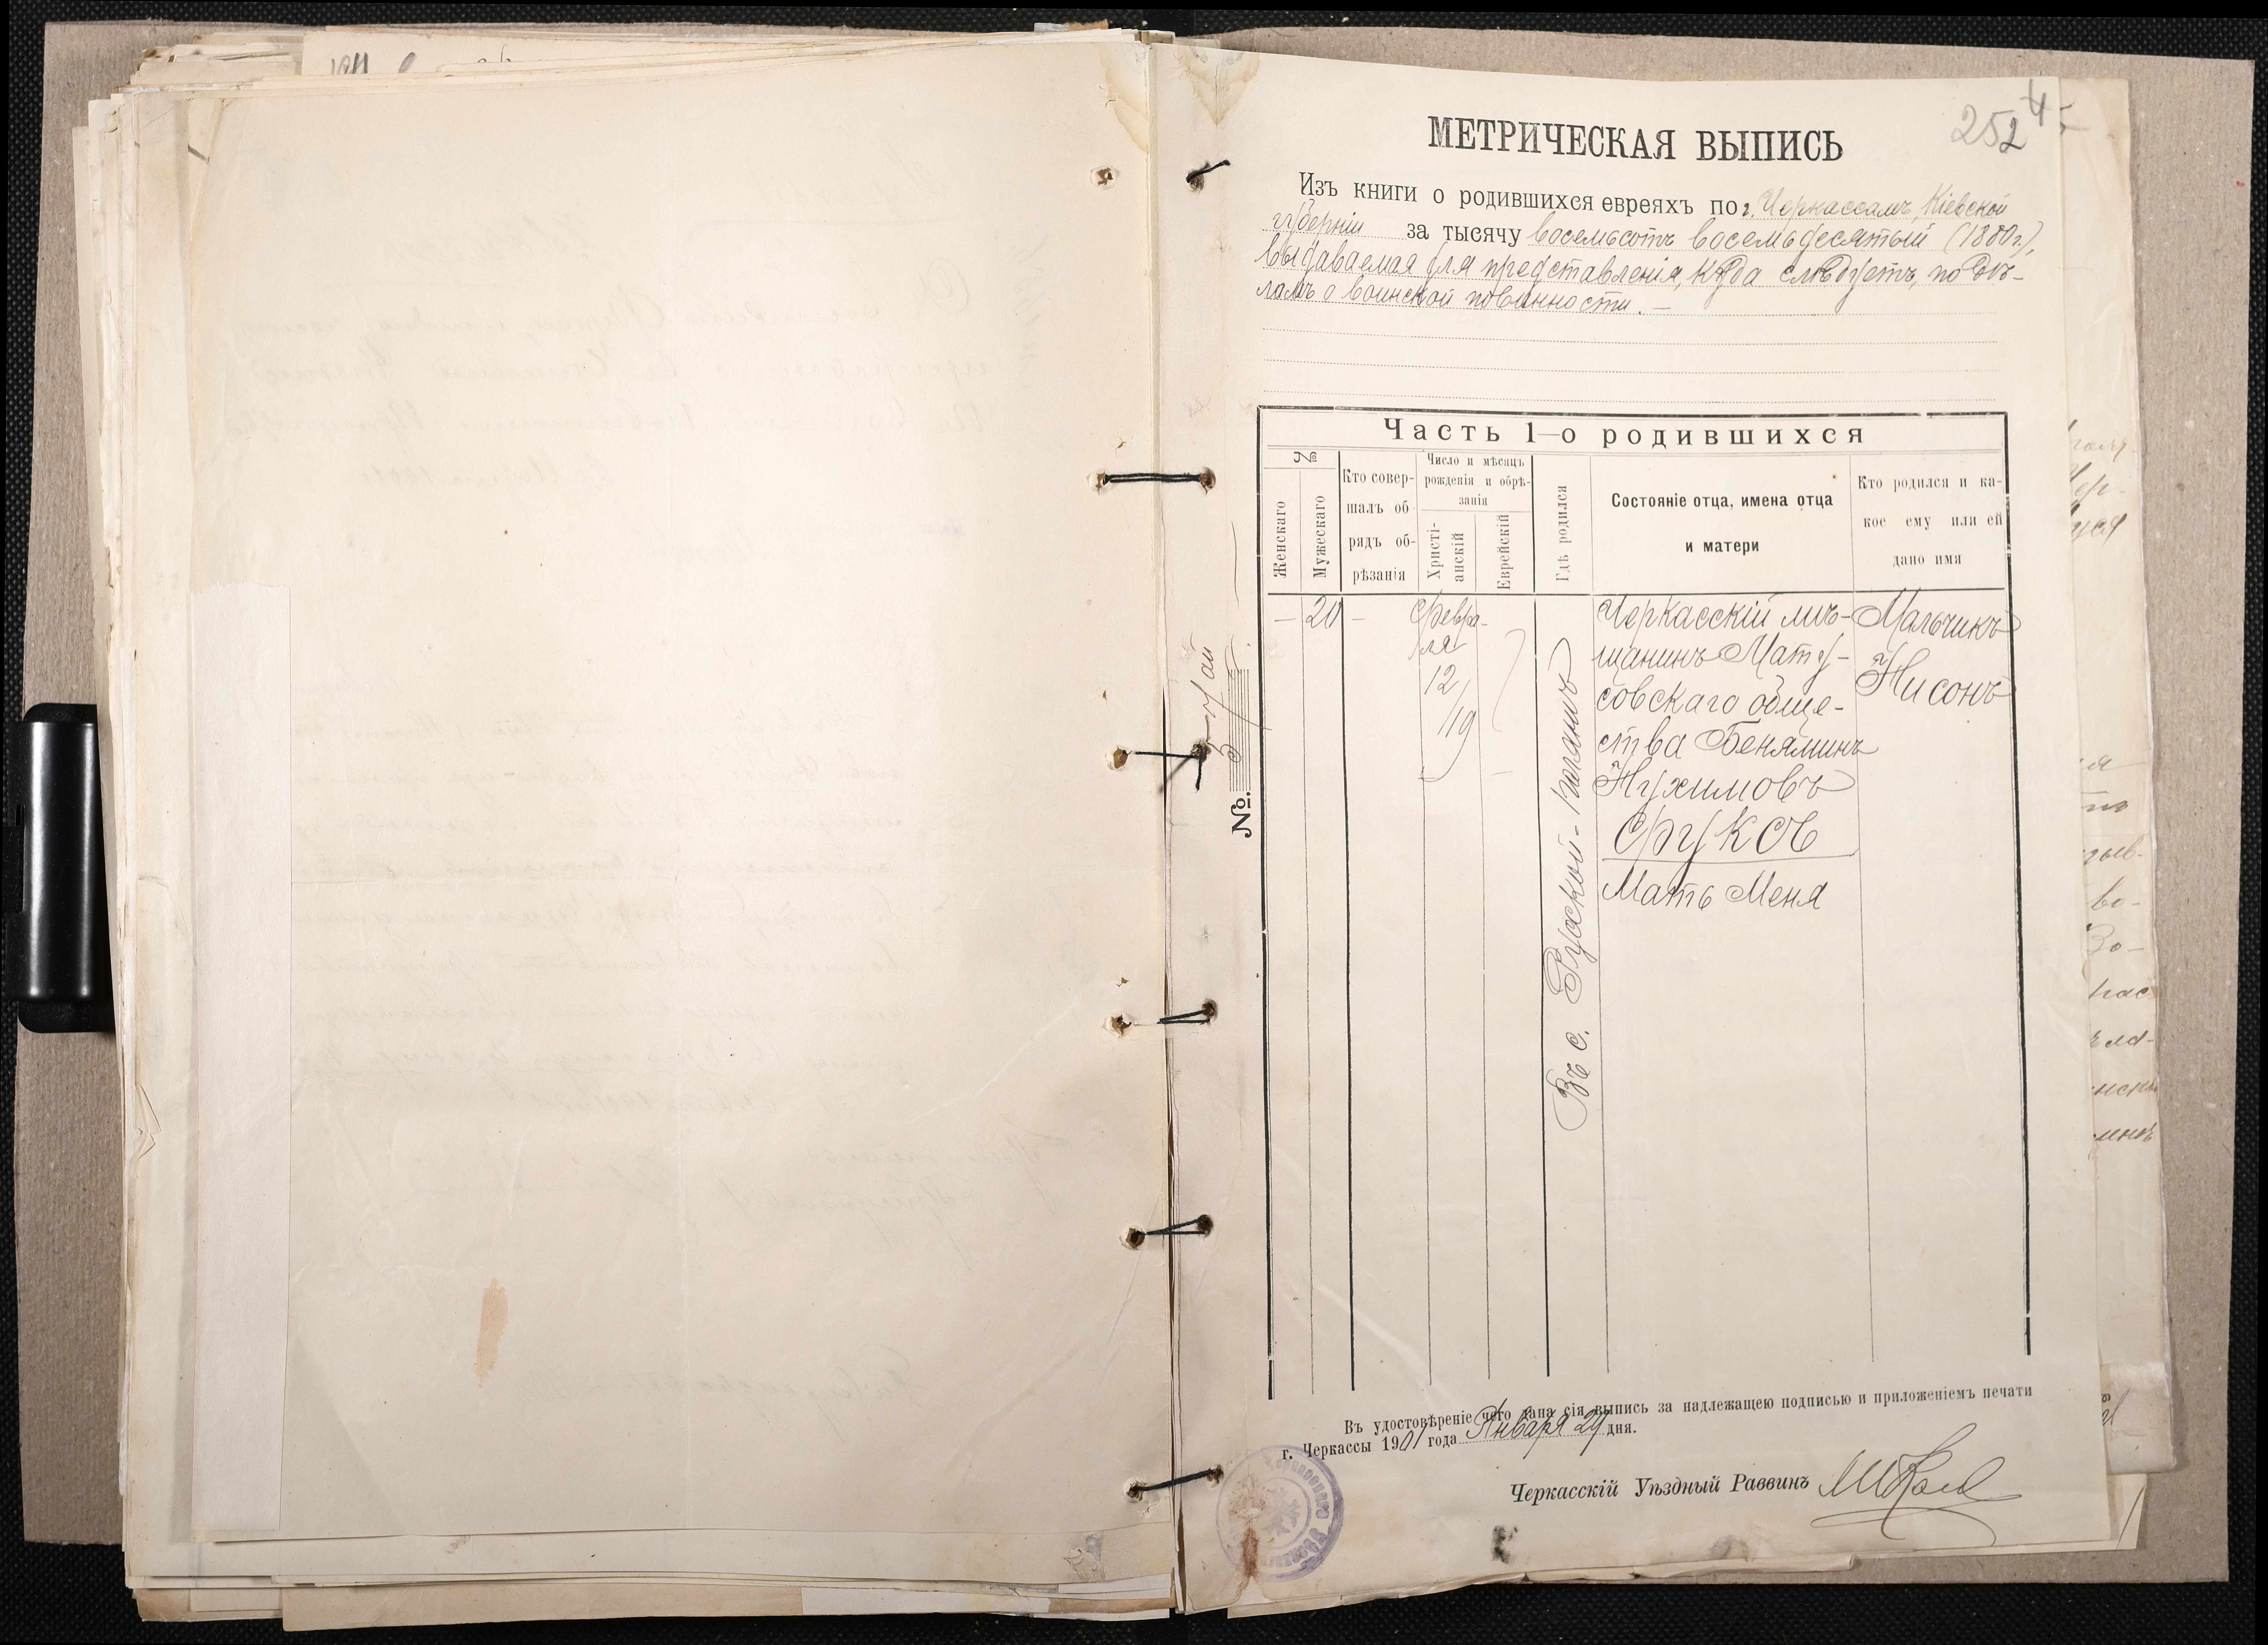 252
МЕТРИЧЕСКАЯ ВЫПИСЬ
Изъ книги о родившихся евреяхъ по г. Черкассамъ, Кіевской
губерніи за тысячу восемьсотъ восемьдесятый (1880 г.),
выдаваемая для представленія, куда слѣдуетъ, по дѣ-
ламъ о воинской повинности. —
Часть 1-о родившихся
№
Женскаго
Мужескаго
Кто совер-
шалъ об
рядъ об-
рѣзанія
Число и мѣсяцъ
рожденія и обрѣ-
занія
Христі-
анскій
Еврейскій
Гдѣ родился
Состояніе отца, имена отца
и матери
Кто родился и ка-
кое ему или ей
дано имя
—
20
—
Февра-
ля
12/
/19
Въ с. Руской-Поляне
Черкасскій мѣ-
щанинъ Мату-
совскаго обще-
ства Беняминъ
Нухимовъ
Фруков
Мать Меня
Мальчикъ
Нисонъ
№
Въ удостовѣреніе чего дана сія выпись за надлежащею подписью и приложеніемъ печати
г. Черкассы 1901 года Января 29 дня.
Черкасскій Уѣздный Раввинъ